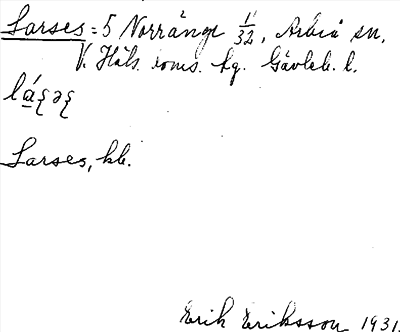 Larses = 5 Norränge 11/32, Arbrå sn,
V. Häls. doms. hg. Gävleb. l.
Larses, kb.
Erik Eriksson 1931.